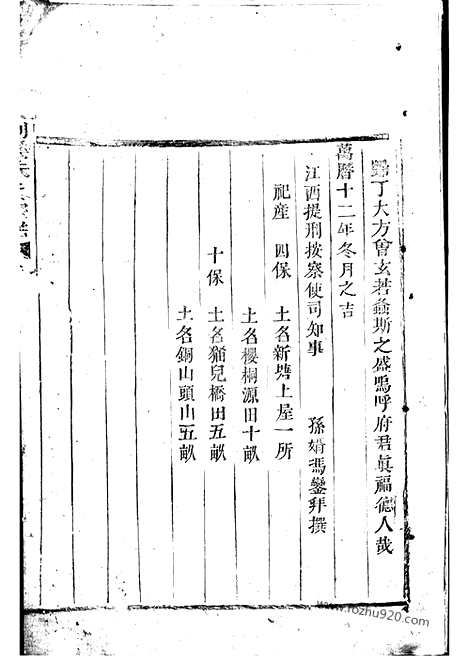 歸丁大方會玄若螽斯之盛嗚呼府君眞福德人哉
萬曆十二年冬月之吉
江西提刑按察使司知事 孫婿馮鑾拜撰
祀産 四保 土名新塘上屋一所
土名櫻桐源田十畝
十保 土名猶兒橋田五畝
土名銅山頭山五畝
www.fozhu920.com